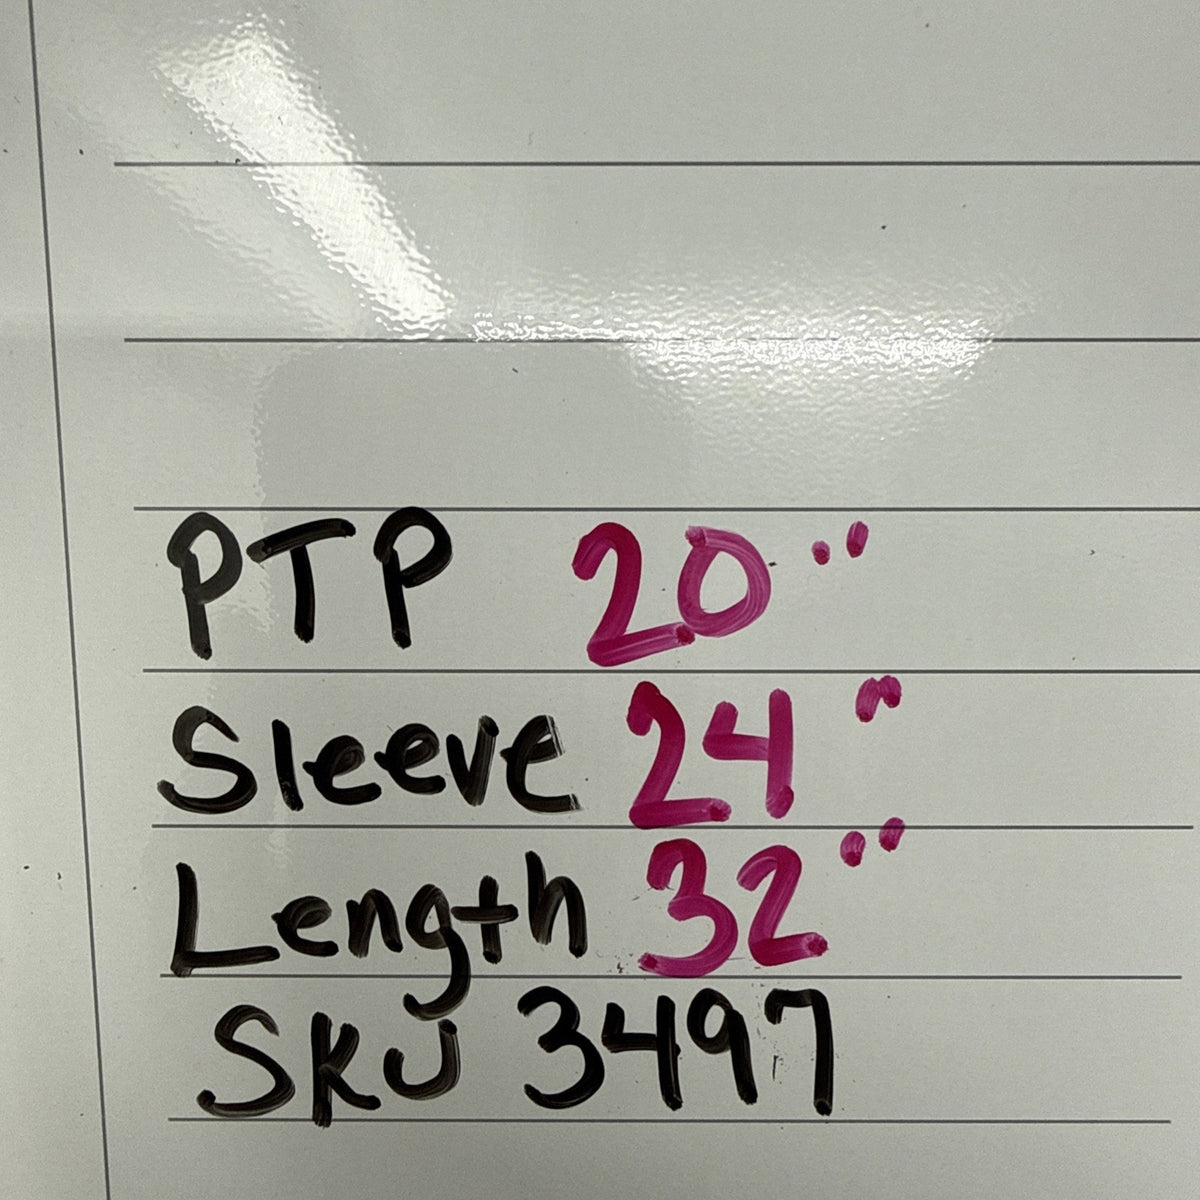 PTP 20"
Sleeve 24"
Length 32"
SKU 3497